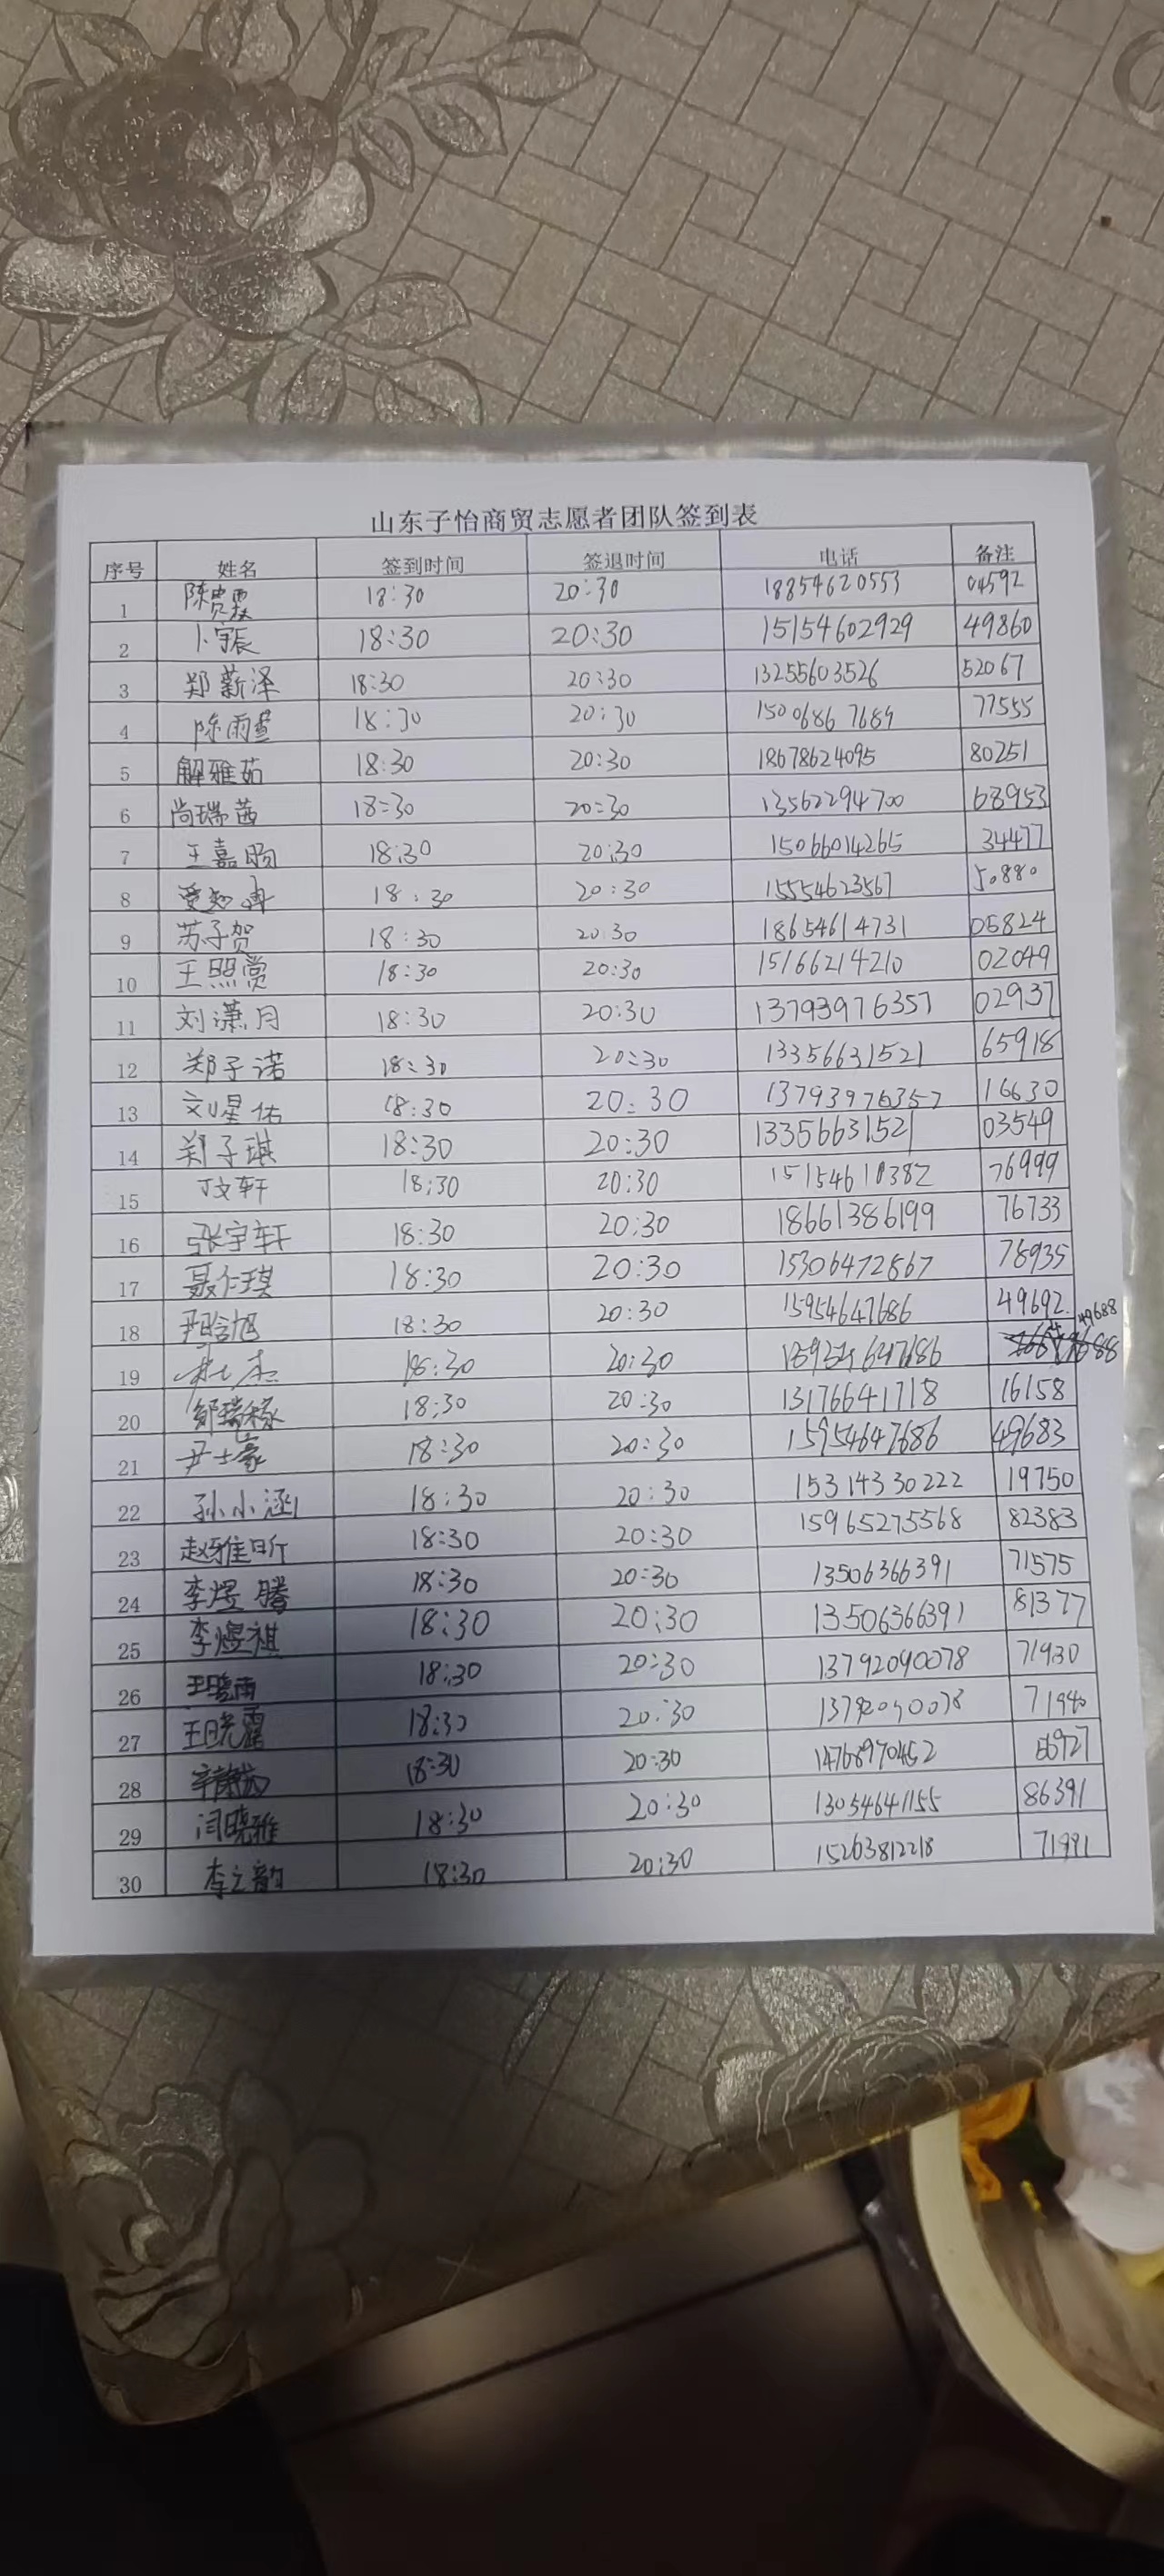 山东子怡商贸志愿者团队签到表
序号 姓名 签到时间 签退时间 电话 备注
1 陈贵霞 18:30 20:30 18854620553 04592
2 卜宇辰 18:30 20:30 15154602929 49860
3 郑薪泽 18:30 20:30 13255603526 52067
4 陈雨萱 18:30 20:30 15006867689 77555
5 解雅茹 18:30 20:30 18678624095 80251
6 尚瑞茜 18:30 20:30 13562294700 68953
7 王嘉旸 18:30 20:30 15066014265 34477
8 18:30 20:30 15554623567 50880
9 苏子贺 18:30 20:30 18654614731 05824
10 王照赏 18:30 20:30 15166214210 02049
11 刘潇月 18:30 20:30 13793976357 02937
12 郑子诺 18:30 20:30 13356631521 65918
13 刘星佑 18:30 20:30 13793976357 16630
14 郑子琪 18:30 20:30 13356631521 03549
15 丁文轩 18:30 20:30 15154610382 76999
16 张宇轩 18:30 20:30 18661386199 76733
17 聂仁琪 18:30 20:30 15306472867 78935
18 尹晗旭 18:30 20:30 15954647686 49692
19 18:30 20:30 49688
20 邹瑞稼 18:30 20:30 13176641718 16158
21 尹士豪 18:30 20:30 15954647686 49683
22 孙小涵 18:30 20:30 15314330222 19750
23 赵雅昕 18:30 20:30 15965275568 82383
24 李煜腾 18:30 20:30 13506366391 71575
25 李煜祺 18:30 20:30 13506366391 81377
26 王晓雨 18:30 20:30 13792090078 71930
27 王晓霏 18:30 20:30 13792090078 71940
28 18:30 20:30 14768970452 66927
29 闫晓雅 18:30 20:30 13054641155 86391
30 李之韵 18:30 20:30 15263812218 71991